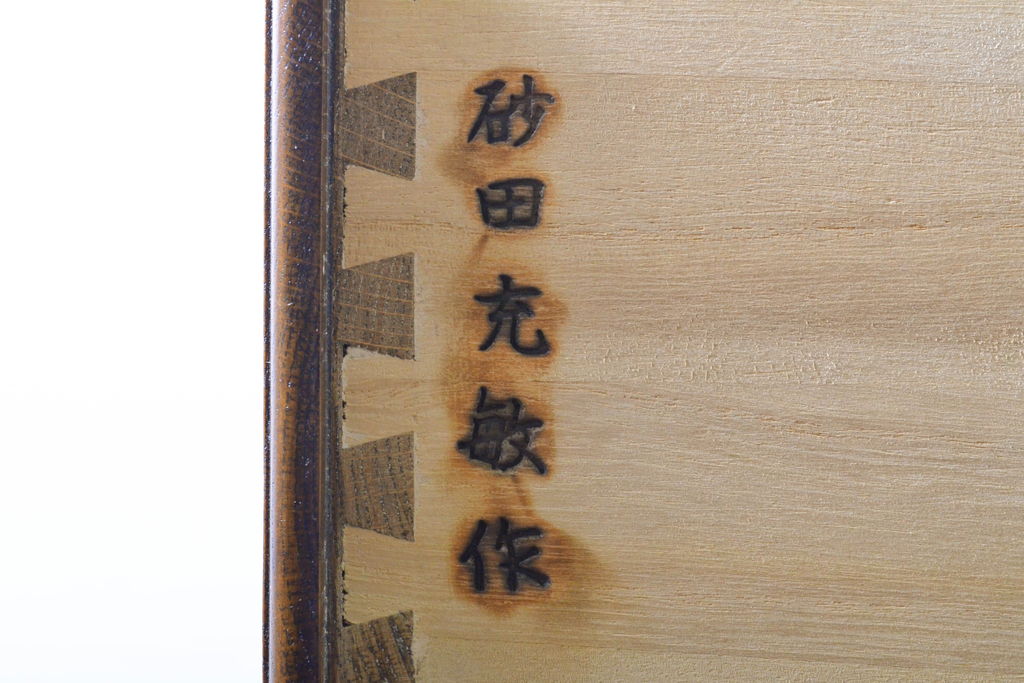 砂田充敏作